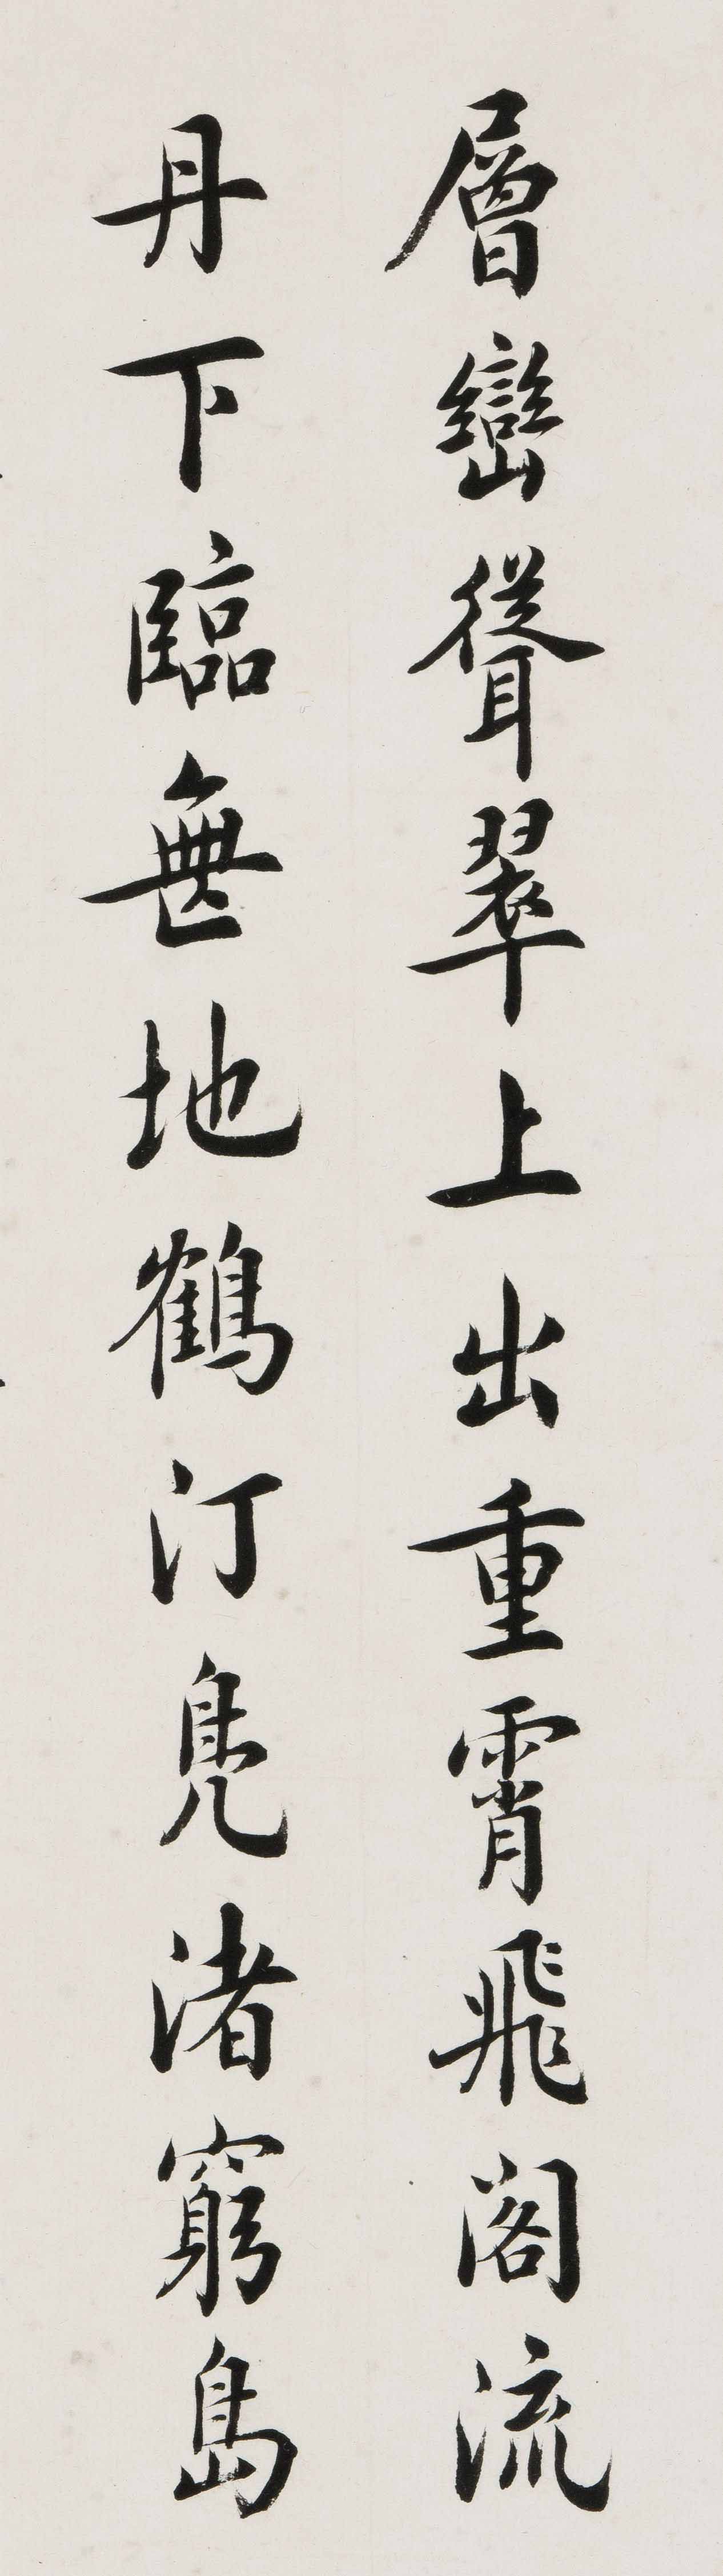 層巒聳翠上出重霄飛閣流
丹下臨無地鶴汀鳧渚窮島